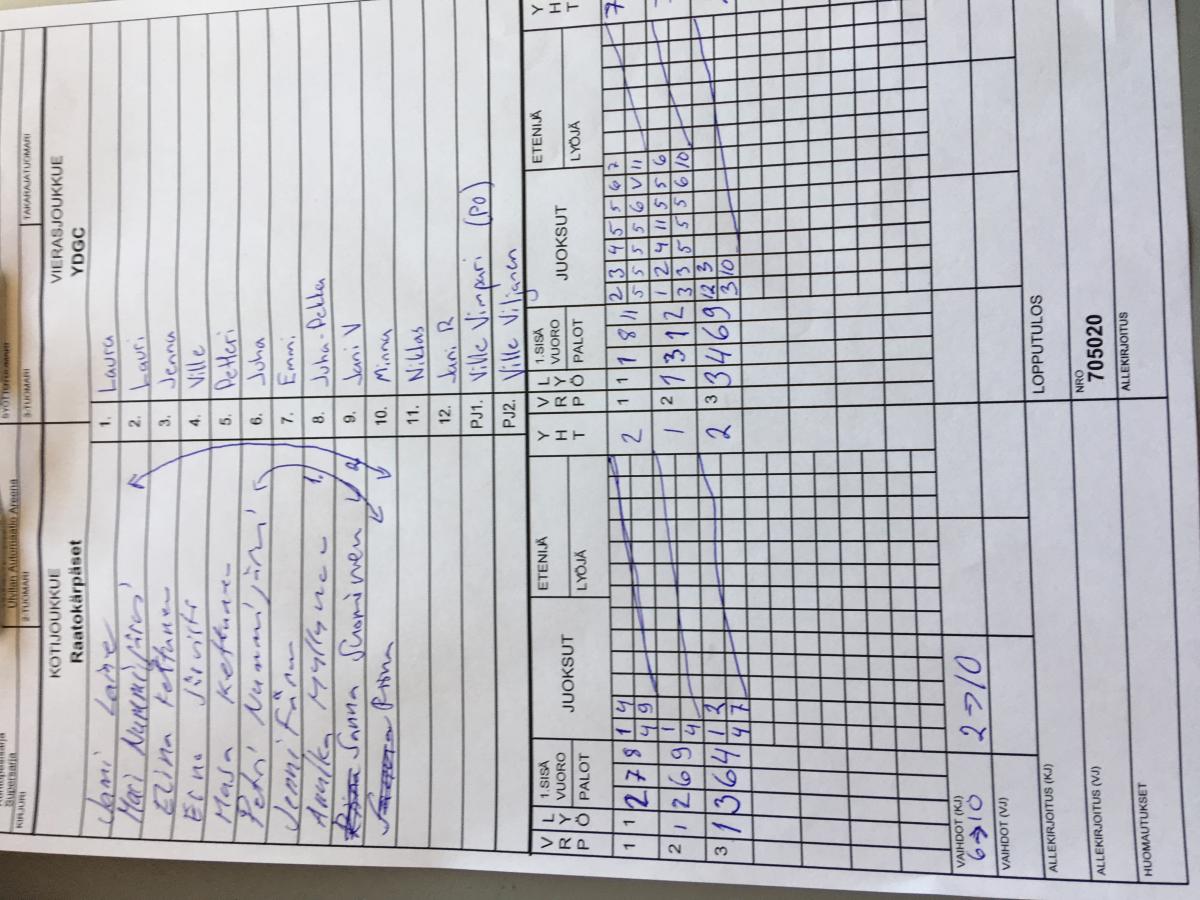 Ulvilan Automaatio Areena
Supersarja
KIRJURI
2-TUOMARI
3-TUOMARI
TAKARAJATUOMARI
KOTIJOUKKUE
VIERASJOUKKUE
Raatokärpäset
YDGC
Jani Laine
1. Laura
Mari Nummijärvi
2. Lauri
Elina Kettunen
3. Jenna
4. Ville
Masa Kettunen
5. Petteri
Petri Nummijärvi
6. Juha
Jenni
7. Emmi
Annika Myllynen
8. Juha-Pekka
Sanna Suominen
9. Jani V
Riina
10. Minna
11. Niklas
12. Jani R
PJ1. Ville Vimpari (PO)
PJ2. Ville Viljanen
V R P L Y Ö 1.SISÄ VUORO PALOT JUOKSUT ETENIJÄ LYÖJÄ Y H T
V R P L Y Ö 1.SISÄ VUORO PALOT JUOKSUT ETENIJÄ LYÖJÄ Y H T
1 1 2 7 8 1 4 2
4 9
1 1 1 8 11 2 3 4 5 5 6 7 7
5 5 5 5 6 V 11
2 1 2 6 9 1 1
4
2 1 3 1 2 1 2 4 11 5 5 6
3 3 5 5 5 6 10
3 1 3 6 4 1 2 2
4 7
3 3 4 6 9 12 3
3 10
VAIHDOT (KJ)
6→10 2→10
VAIHDOT (VJ)
ALLEKIRJOITUS (KJ)
LOPPUTULOS
ALLEKIRJOITUS (VJ)
NRO
705020
HUOMAUTUKSET
ALLEKIRJOITUS